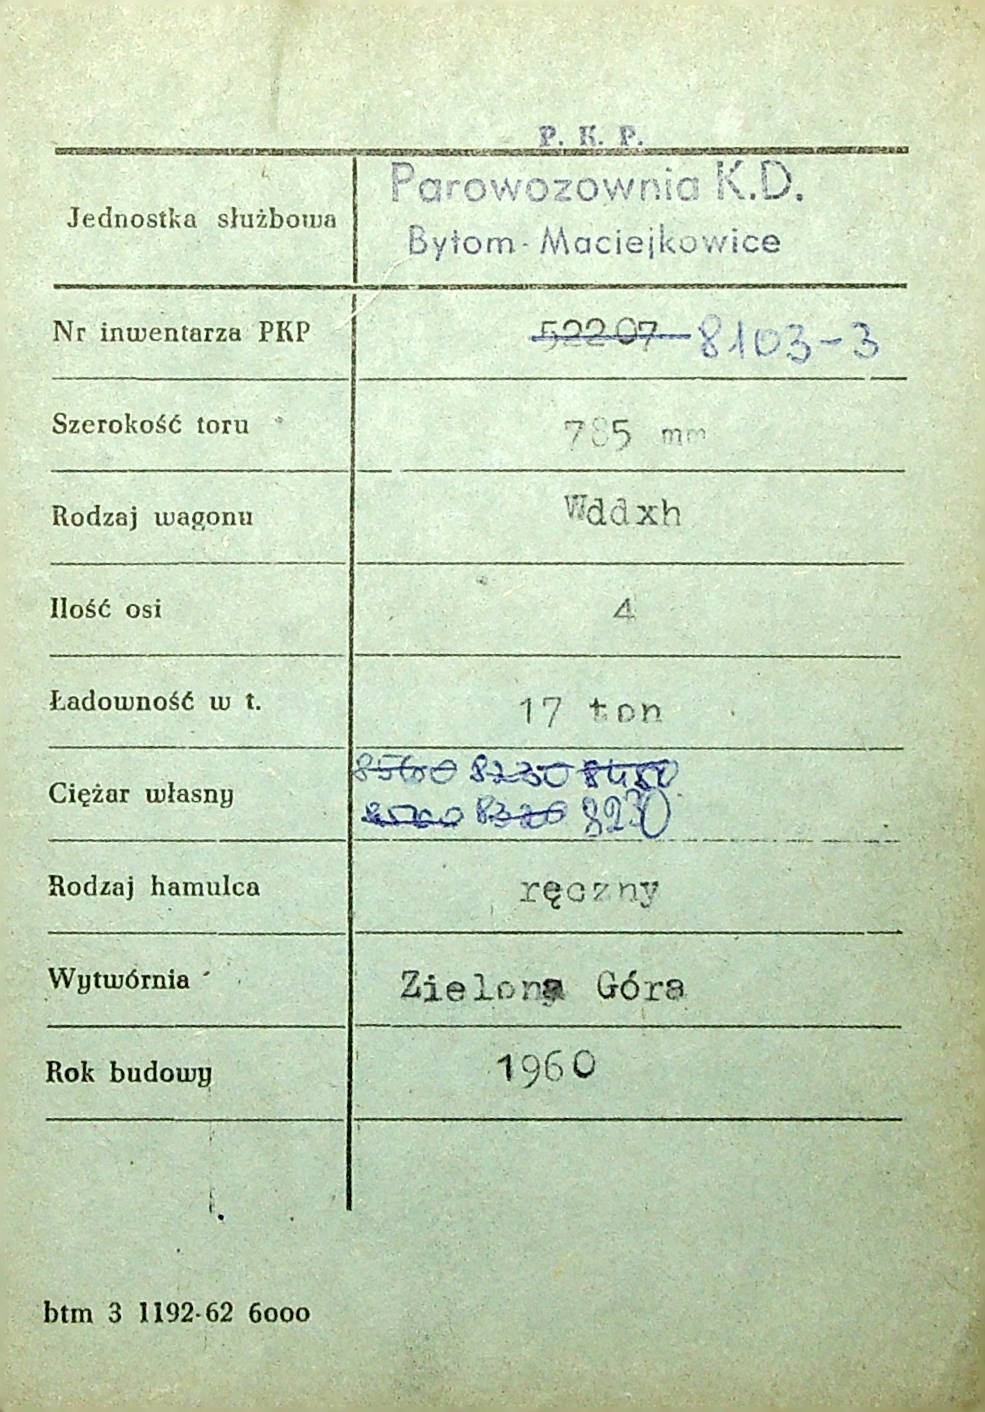 P. K. P.
Jednostka służbowa Parowozownia K.D.
Bytom-Maciejkowice
Nr inwentarza PKP 52207 8103-3
Szerokość toru 785 mm
Rodzaj wagonu Wddxh
Ilość osi 4
Ładowność w t. 17 ton
8230 8480
Ciężar własny 8320 8230
Rodzaj hamulca ręczny
Wytwórnia Zielona Góra
Rok budowy 1960
btm 3 1192-62 6000